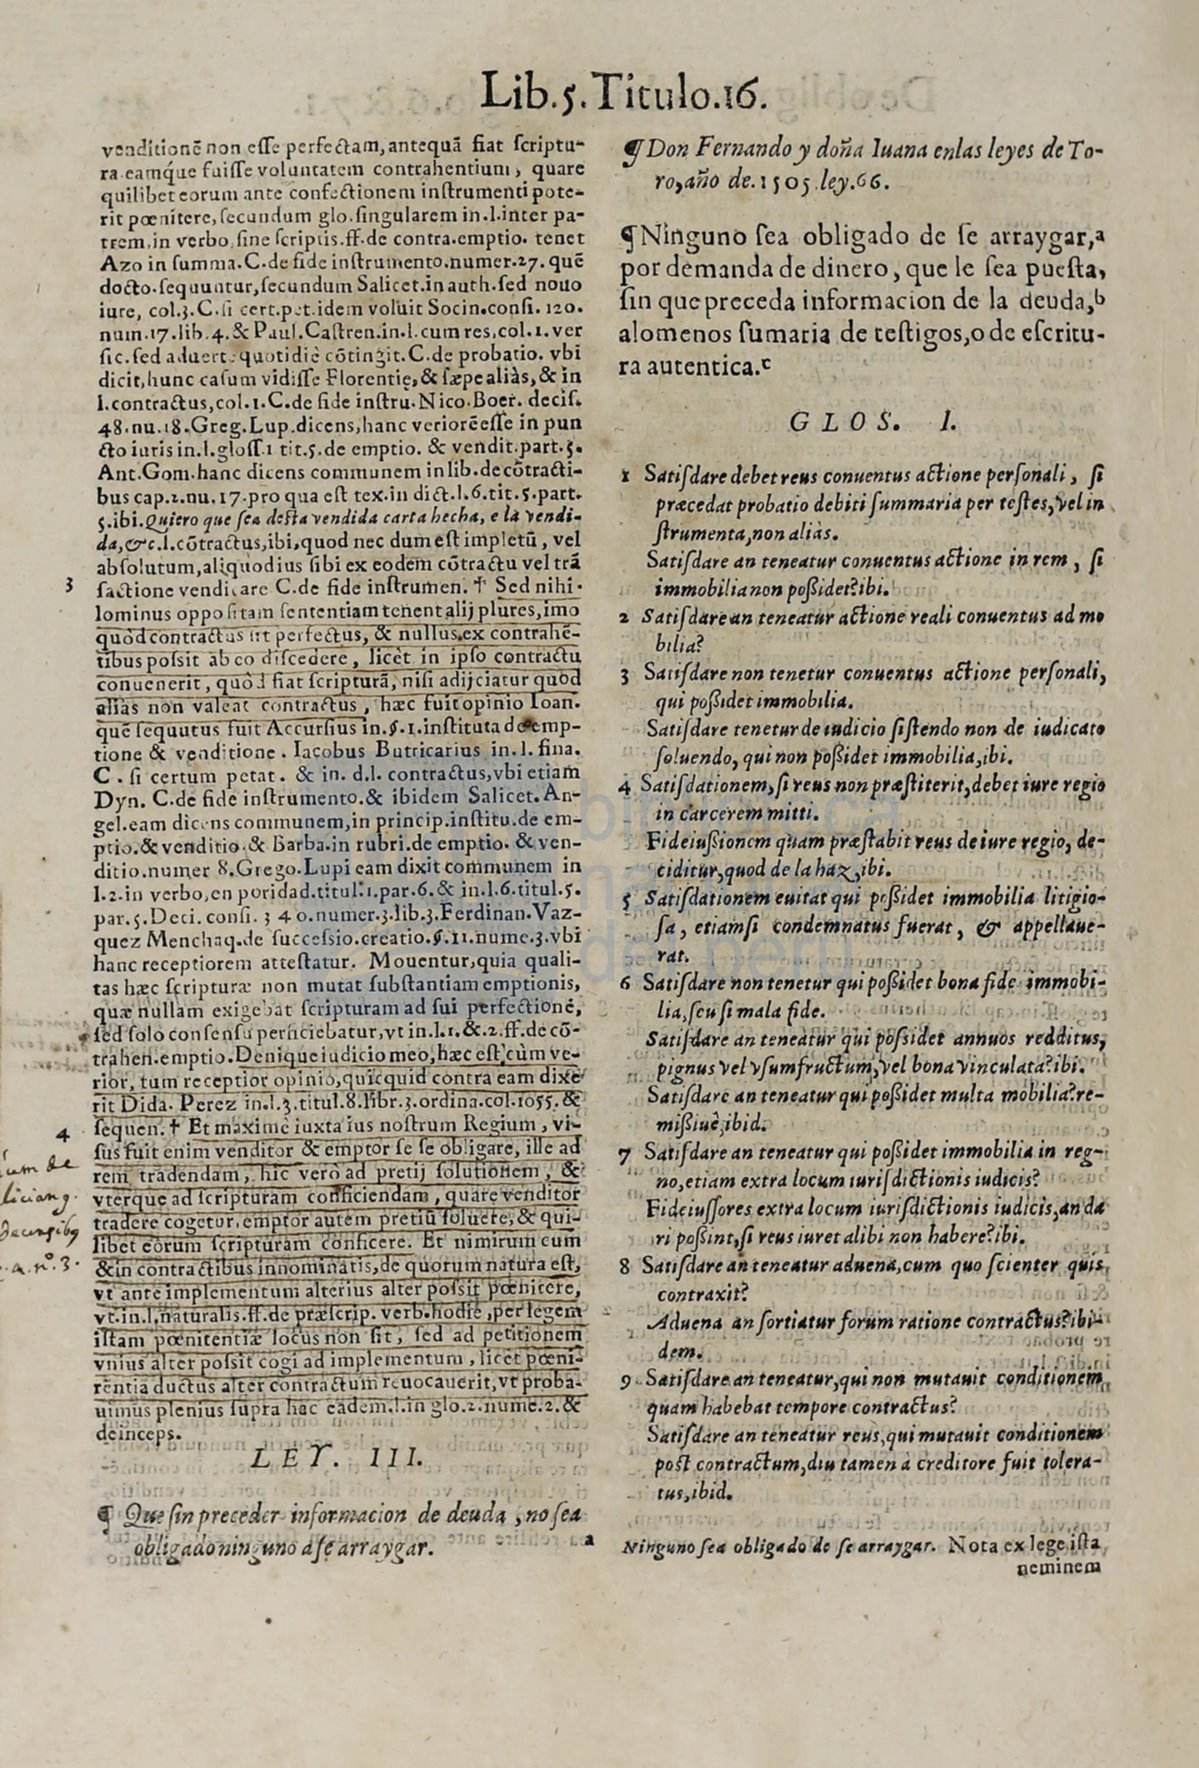 Lib.5.Titulo.16.
venditionē non eſſe perfectam, antequā fiat ſcriptu-
ra eamq́ue fuiſſe voluntatem contrahentium, quare
quilibet eorum ante confectionem inſtrumenti pote-
rit pœnitere, ſecundum glo. ſingularem in.l.inter pa-
trem, in verbo, ſine ſcriptis.ff.de contra.emptio. tenet
Azo in ſumma.C.de fide inſtrumento.numer.27. quē
docto.ſequuntur, ſecundum Salicet.in auth.ſed nouo
iure, col.3.C.ſi cert.pet.idem voluit Socin.conſi.120.
num.17.lib.4.& Paul.Caſtren.in.l.cum res, col.1.ver
ſic.ſed aduert.quotidiè cōtingit.C.de probatio. vbi
dicit, hunc caſum vidiſſe Florentię, & ſæpe aliàs, & in
l.contractus, col.1.C.de fide inſtru. Nico. Boer. deciſ.
48.nu.18. Greg. Lup. dicens, hanc verioreē eſſe in pun
cto iuris in.l.gloſſ.1 tit.5.de emptio. & vendit.part.5.
Ant.Gom.hanc dicens communem in lib.de cōtracti-
bus cap.2.nu.17.pro qua eſt tex.in dict.l.6.tit.5.part.
5.ibi.Quiero que ſea deſta vendida carta hecha, e la vendi-
da, &c.l.cōtractus, ibi, quod nec dum eſt impletū, vel
abſolutum, aliquod ius ſibi ex eodem cōtractu vel trā
3 ſactione vendicare C.de fide inſtrumen. † Sed nihi-
lominus oppoſitam ſententiam tenent alij plures, imo
quòd contractus ſit perfectus, & nullus ex contrahē-
tibus poſsit ab eo diſcedere, licèt in ipſo contractu
conuenerit, quòd fiat ſcripturā, niſi adijciatur quòd
aliàs non valeat contractus, hæc fuit opinio Ioan.
quē ſequutus fuit Accurſius in.§.1.inſtituta de emp-
tione & venditione. Iacobus Butricarius in.l. fina.
C. ſi certum petat. & in. d.l. contractus, vbi etiam
Dyn. C.de fide inſtrumento.& ibidem Salicet. An-
gel.eam dicens communem, in princip.inſtitu.de em-
ptio.& venditio.& Barba.in rubri.de emptio. & ven-
ditio.numer 8.Grego.Lupi eam dixit communem in
l.2.in verbo, en poridad.titul.1.par.6.& in.l.6.titul.5.
par.5.Deci. conſi. 340.numer.3.lib.3.Ferdinan.Vaz-
quez Menchaq.de ſucceſsio.creatio.§.11.nume.3.vbi
hanc receptiorem atteſtatur. Mouentur, quia quali-
tas hæc ſcripturæ non mutat ſubſtantiam emptionis,
quæ nullam exigebat ſcripturam ad ſui perfectionē,
ſed ſolo conſenſu perficiebatur, vt in.l.1.&.2.ff.de cō-
trahen.emptio. Denique iudicio meo, hæc eſt, cùm ve-
rior, tum receptior opinio, quicquid contra eam dixe
rit Dida. Perez in.l.3.titul.8.libr.3.ordina.col.1055.&
4 ſequen. † Et maximè iuxta ius noſtrum Regium, vi-
ſus fuit enim venditor & emptor ſe ſe obligare, ille ad
rem tradendam, hic verò ad pretij ſolutionem, &
vterque ad ſcripturam conficiendam, quare venditor
tradere cogetur, emptor autem pretiū ſoluere, & qui-
libet eorum ſcripturam conficere. Et nimirum cum
& in contractibus innominatis, de quorum natura eſt,
vt ante implementum alterius alter poſsit pœnitere,
vt.in.l.naturalis.ff.de præſcrip. verb. hodie, per legem
iſtam pœnitentiæ locus non ſit, ſed ad petitionem
vnius alter poſsit cogi ad implementum, licèt pœni-
tentia ductus alter contractum reuocauerit, vt proba-
uimus plenius ſupra hac eadem.l.in glo.2.nume.2.&
deinceps.
LEY. III.
¶ Que ſin preceder informacion de deuda, no ſea
obligado ninguno a ſe arraygar.
¶ Don Fernando y doña Iuana en las leyes de To-
ro, año de.1505.ley.66.
¶ Ninguno ſea obligado de ſe arraygar,a
por demanda de dinero, que le ſea pueſta,
ſin que preceda informacion de la deuda,b
alomenos ſumaria de teſtigos, o de eſcritu-
ra autentica.c
GLOS. I.
1 Satiſdare debet reus conuentus actione perſonali, ſi
præcedat probatio debiti ſummaria per teſtes, vel in
ſtrumenta, non aliàs.
Satiſdare an teneatur conuentus actione in rem, ſi
immobilia non poßidet? ibi.
2 Satiſdare an teneatur actione reali conuentus ad mo
bilia?
3 Satiſdare non tenetur conuentus actione perſonali,
qui poßidet immobilia.
Satiſdare tenetur de iudicio ſiſtendo non de iudicato
ſoluendo, qui non poßidet immobilia, ibi.
4 Satiſdationem, ſi reus non præſtiterit, debet iure regio
in carcerem mitti.
Fideiußionem quam præſtabit reus de iure regio, de-
ciditur, quod de la haz, ibi.
5 Satiſdationem euitat qui poßidet immobilia litigio-
ſa, etiamſi condemnatus fuerat, & appellaue-
rat.
6 Satiſdare non tenetur qui poßidet bona fide immobi-
lia, ſeu ſi mala fide.
Satiſdare an teneatur qui poßidet annuos redditus,
pignus vel vſumfructum, vel bona vinculata? ibi.
Satiſdare an teneatur qui poßidet multa mobilia? re-
mißiuè, ibid.
7 Satiſdare an teneatur qui poßidet immobilia in reg-
no, etiam extra locum iuriſdictionis iudicis?
Fideiuſſores extra locum iuriſdictionis iudicis, an da
ri poßint, ſi reus iuret alibi non habere? ibi.
8 Satiſdare an teneatur aduena, cum quo ſcienter quis
contraxit?
Aduena an ſortiatur forum ratione contractus? ibi-
dem.
9 Satiſdare an teneatur, qui non mutauit conditionem
quam habebat tempore contractus?
Satiſdare an teneatur reus, qui mutauit conditionem
poſt contractum, diu tamen à creditore fuit tolera-
tus, ibid.
a Ninguno ſea obligado de ſe arraygar. Nota ex lege iſta
neminem